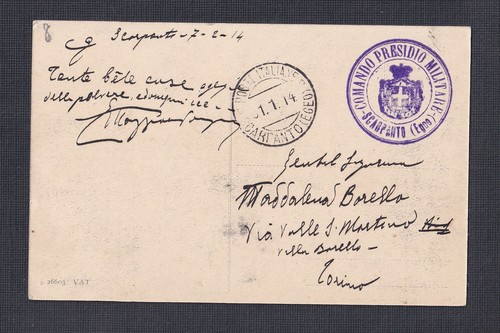 8
Scarpanto - 7-2-14
Tante belle cose
POSTE ITALIANE
1.1.14
SCARPANTO (EGEO)
COMANDO PRESIDIO MILITARE
SCARPANTO (Egeo)
Gentil Signorina
Maddalena Borello
Via Valle S. Martino
Villa Borello -
Torino
26603 VAT